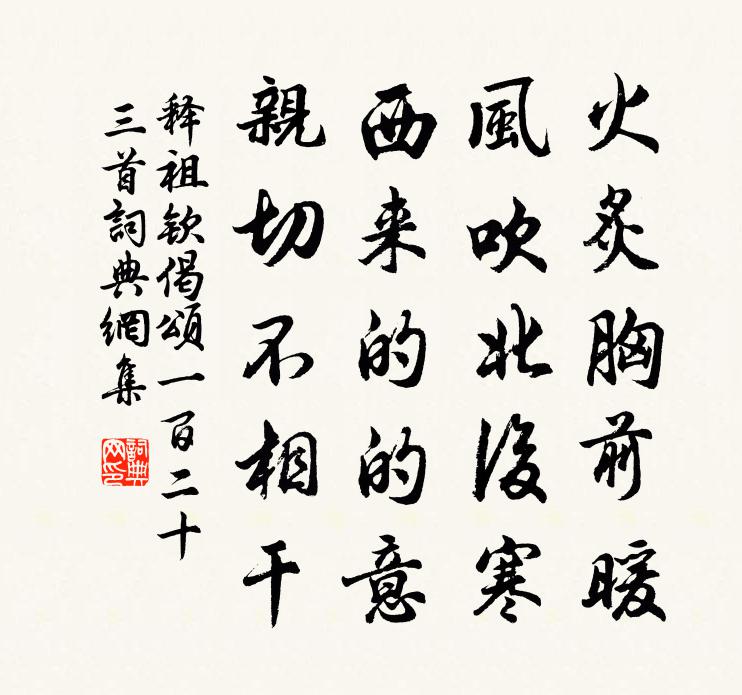 火炙胸前暖
風吹北後寒
西来的的意
親切不相干
释祖欽偈頌一百二十
三首詞典網集
詞典
网印